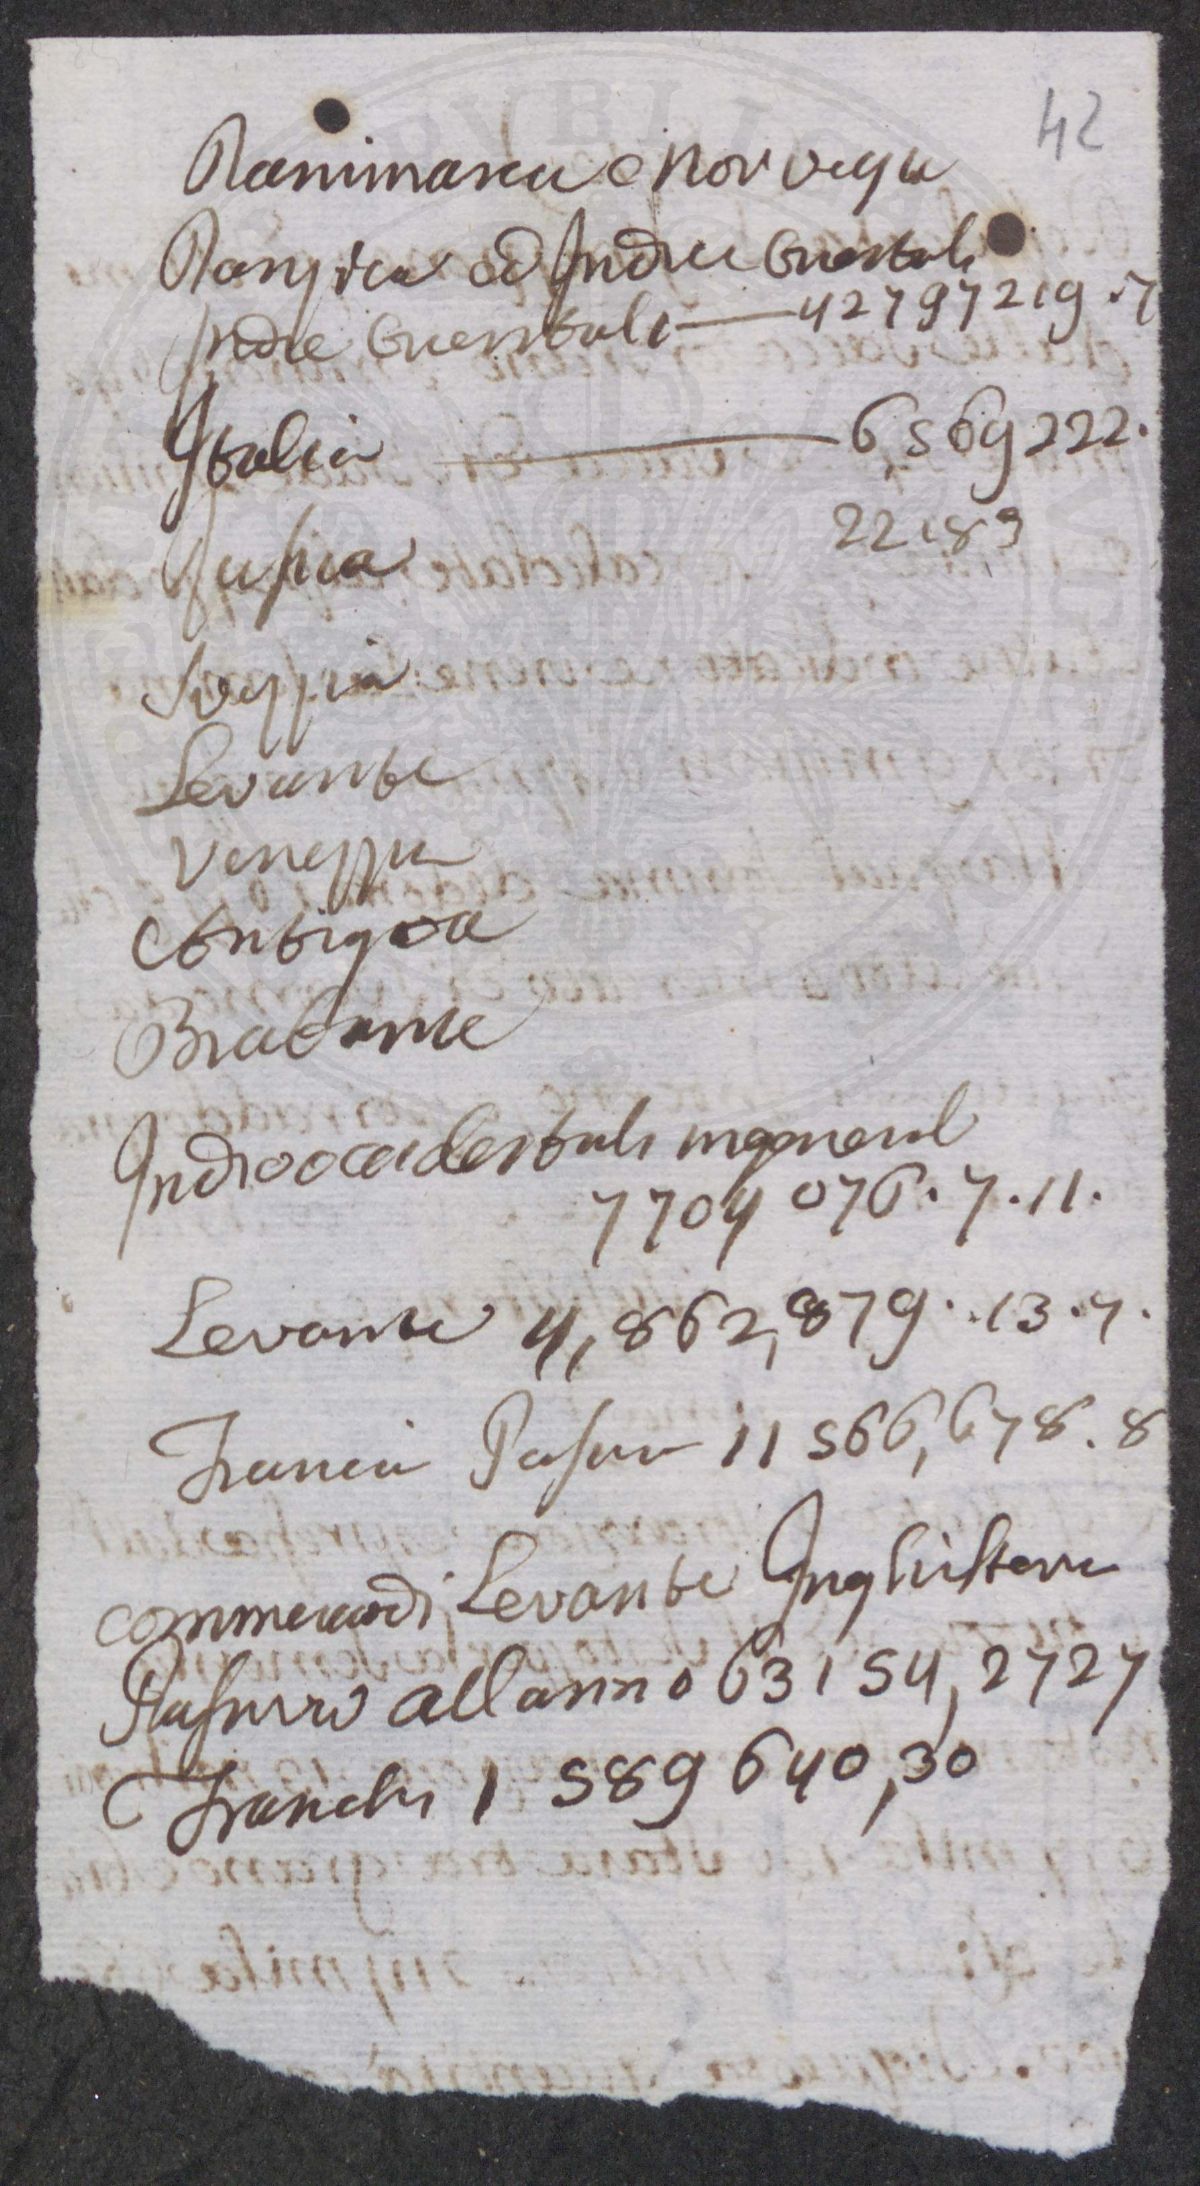 42
Danimarca e Norvegia
Danzica ed Indie Orientali
Indie Orientali — 42797219.7
Italia — 6569222.
Russia 22189
Svezzia
Levante
Venezzia
Antigoa
Brabante
Indie occidentali in general
7704 076.7.11.
Levante 4,862,879..13.7.
Francia Passivo 11 566,678.8
commercio di Levante Inghilterra
Passivo all anno 63154,2727
Franchi 1 589 640,30